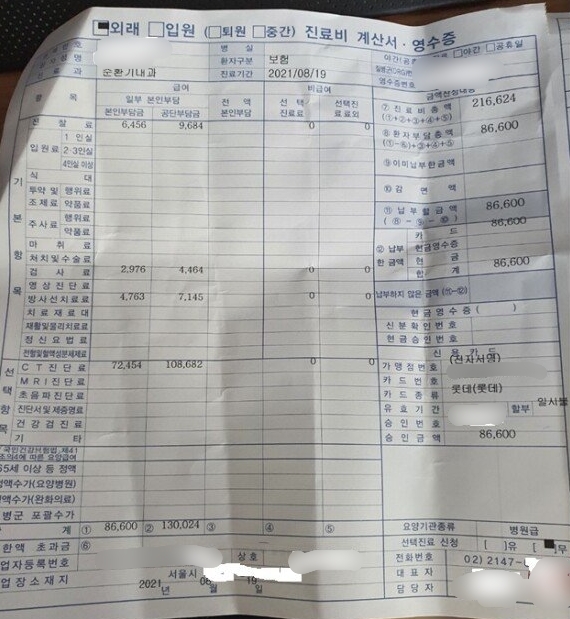 ■외래 □입원 (□퇴원 □중간) 진료비 계산서·영수증
병 실
환자구분 보험
진 료 과 순환기내과 진료기간 2021/08/19
야간(공휴 □야간 □공휴일
영수증번호
항 목 급여 비급여
일부 본인부담 전 액 선 택 선택진
본인부담금 공단부담금 본인부담 진료료 료외
진 찰 료 6,456 9,684 0 0
입원료 1 인실
2·3인실
4인실 이상
식 대
투약 및 행위료
조제료 약품료
주사료 행위료
약품료
마 취 료
처치및수술료
검 사 료 2,976 4,464 0 0
영상진단료
방사선치료료 4,763 7,145 0 0
치료재료대
재활및물리치료료
정신요법료
전혈및혈액성분제제료
CT진단료 72,454 108,682 0 0
MRI진단료
초음파진단료
진단서및제증명료
건강검진료
기 타
65세 이상 등 정액
정액수가(요양병원)
정액수가(완화의료)
병군 포괄수가
계 ① 86,600 ② 130,024 ③ ④ ⑤
한액 초과금 ⑥
업자등록번호 상 호
업장소재지 서울시
2021 년 월 19 일
금액산정내용
⑦ 진료비총액 216,624
(①+②+③+④+⑤)
⑧ 환자부담총액 86,600
(①-⑥)+③+④+⑤
⑨ 이미납부한금액
⑩ 감 면 액
⑪ 납부할금액 86,600
(⑧-⑨-⑩) 86,600
카 드
⑫ 납부 현금영수증
한금액 현 금
합 계 86,600
납부하지 않은 금액 (⑪-⑫)
현금영수증( )
신분확인번호
현금승인번호
신 용 카 드
가맹점번호 (전자서명)
카드번호
카드종류 롯데(롯데)
유효기간 할부 일시불
승인번호
승인금액 86,600
요양기관종류 병원급
선택진료 신청 [ ]유 [■]무
전화번호 02) 2147-
대 표 자
담 당 자